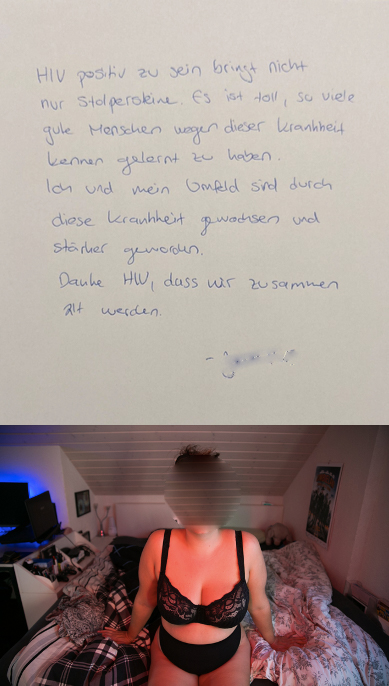 HIV positiv zu sein bringt nicht
nur Stolpersteine. Es ist toll, so viele
gute Menschen wegen dieser Krankheit
kennen gelernt zu haben.
Ich und mein Umfeld sind durch
diese Krankheit gewachsen und
stärker geworden.
Danke HIV, dass wir zusammen
alt werden.